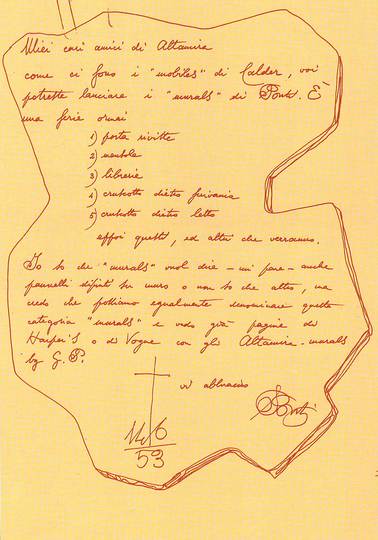 Miei cari amici di Altamira
come ci sono i "mobiles" di Calder, voi
potreste lanciare i "murals" di Ponti. È
una serie ormai
1) porta riviste
2) mensole
3) librerie
4) cruscotto dietro scrivania
5) cruscotto dietro letto
eppoi questi, ed altri che verranno.
Io so che "murals" vuol dire - mi pare - anche
pannelli dipinti su muro o non so che altro, ma
credo che possiamo egualmente denominare questa
categoria "murals" e vedo già pagine di
Harper's o di Vogue con gli Altamira-murals
by G. P.
vi abbraccio
Ponti
6
53